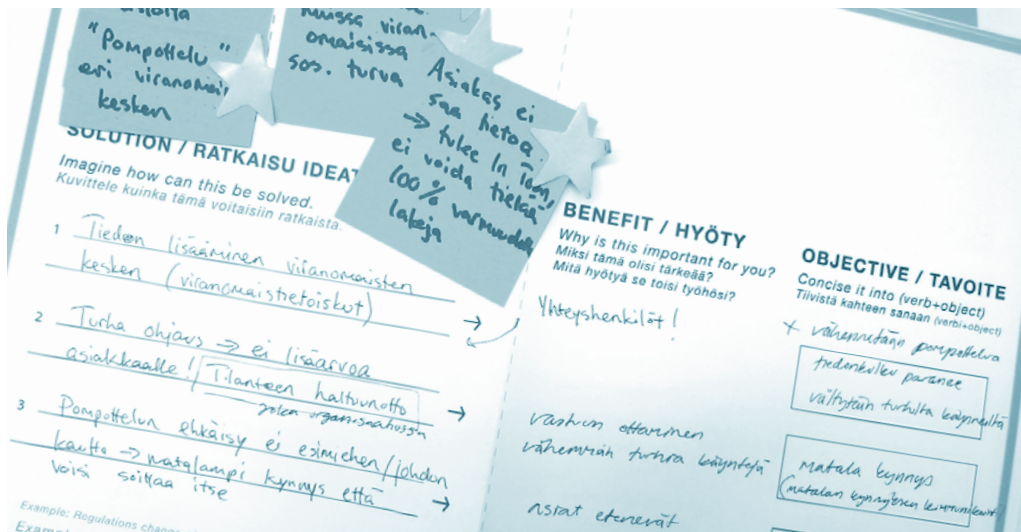 "Pompottelu"
eri viranomais
kesken
muissa viran-
omaisissa
sos. turva
Asiakas ei
saa tietoa
→ tulee In Toon,
ei voida tietää
100% varmuudella
lakeja
SOLUTION / RATKAISU IDEAT
Imagine how can this be solved.
Kuvittele kuinka tämä voitaisiin ratkaista.
1 Tiedon lisääminen viranomaisten
kesken (viranomaistietoiskut)
2 Turha ohjaus → ei lisäarvoa
asiakkaalle! / Tilanteen haltuunotto
joka organisaatiossa
3 Pompottelun ehkäisy ei esimiehen/johdon
kautta → matalampi kynnys että
voisi soittaa itse
Example: Regulations change
BENEFIT / HYÖTY
Why is this important for you?
Miksi tämä olisi tärkeää?
Mitä hyötyä se toisi työhösi?
Yhteyshenkilöt!
vastuun ottaminen
vähemmän turhia käyntejä
asiat etenevät
OBJECTIVE / TAVOITE
Concise it into (verb+object)
Tiivistä kahteen sanaan (verbi+object)
x vähennetään pompottelua
tiedonkulku paranee
vältytään turhilta käynneiltä
matala kynnys
(matalan kynnyksen